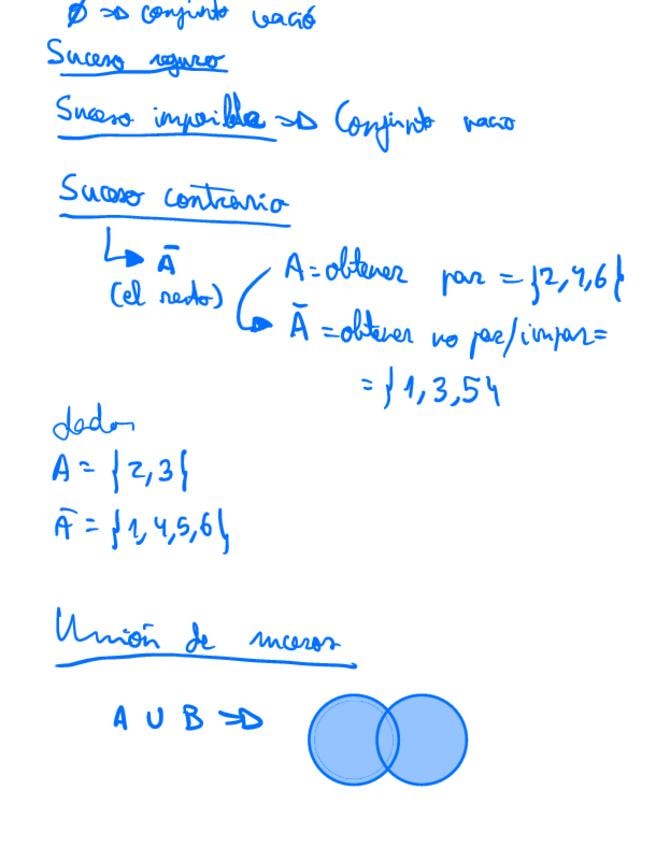 ∅ ⇒ conjunto vació
Suceso seguro
Suceso imposible ⇒ Conjunto vacio
Suceso contrario
Ā
(el resto)
A = obtener par = {2,4,6}
Ā = obtener no par/impar =
= {1,3,5}
dados
A = {2,3}
Ā = {1,4,5,6}
Unión de sucesos
A U B ⇒